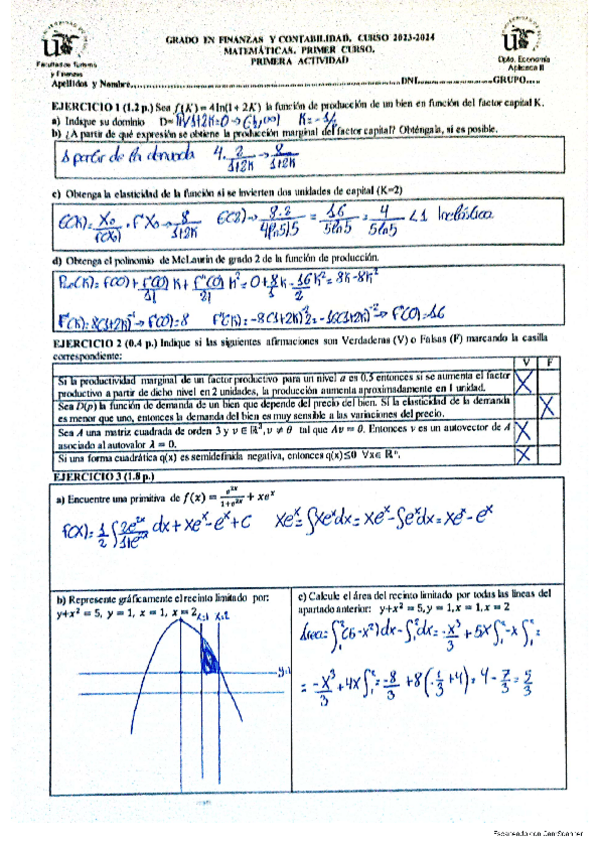 GRADO EN FINANZAS Y CONTABILIDAD, CURSO 2023-2024
MATEMÁTICAS. PRIMER CURSO.
PRIMERA ACTIVIDAD
Facultad de Turismo
y Finanzas
Dpto. Economía
Aplicada II
Apellidos y Nombre DNI GRUPO
EJERCICIO 1 (1.2 p.) Sea f(K) = 4ln(1 + 2K) la función de producción de un bien en función del factor capital K.
a) Indique su dominio D=
b) ¿A partir de qué expresión se obtiene la producción marginal del factor capital? Obténgala, si es posible.
A partir de la demanda 4·2/1+2K → 8/1+2K
c) Obtenga la elasticidad de la función si se invierten dos unidades de capital (K=2)
E(K)= X₀/f(X₀) · f'X₀ → 8/1+2K E(2) → 8·2/4ln5)5 = 16/5ln5 = 4/5ln5 < 1 Inelástica
d) Obtenga el polinomio de McLaurin de grado 2 de la función de producción.
f(0) + f'(0)/1! K + f''(0)/2! K² = 0 + 8/1 K - 16/2 K² = 8K - 8K²
f'(K) = 8(1+2K)⁻¹ → f'(0) = 8 f''(K) = -8(1+2K)⁻²2 = -16(1+2K)⁻² → f''(0) = 16
EJERCICIO 2 (0.4 p.) Indique si las siguientes afirmaciones son Verdaderas (V) o Falsas (F) marcando la casilla
correspondiente:
V F
Si la productividad marginal de un factor productivo para un nivel a es 0.5 entonces si se aumenta el factor
productivo a partir de dicho nivel en 2 unidades, la producción aumenta aproximadamente en 1 unidad. X
Sea D(p) la función de demanda de un bien que depende del precio del bien. Si la elasticidad de la demanda
es menor que uno, entonces la demanda del bien es muy sensible a las variaciones del precio. X
Sea A una matriz cuadrada de orden 3 y v ∈ ℝ³, v ≠ θ tal que Av = θ. Entonces v es un autovector de A
asociado al autovalor λ = 0. X
Si una forma cuadrática q(x) es semidefinida negativa, entonces q(x)≤0 ∀x∈ ℝⁿ. X
EJERCICIO 3 (1.8 p.)
a) Encuentre una primitiva de f(x) = e²ˣ/1+e²ˣ + xeˣ
F(X) = 1/2 ∫ 2e²ˣ/1+e²ˣ dx + xeˣ - eˣ + C xeˣ = ∫xeˣdx = xeˣ - ∫eˣdx = xeˣ - eˣ
b) Represente gráficamente el recinto limitado por:
y+x² = 5, y = 1, x = 1, x = 2
x=1 x=2
y=1
c) Calcule el área del recinto limitado por todas las líneas del
apartado anterior: y+x² = 5, y = 1, x = 1, x = 2
Área = ∫₁²(5-x²)dx - ∫₁²dx = -x³/3 + 5x ∫₁² - x ∫₁² =
= -x³/3 + 4x ∫₁² = -8/3 + 8 - (-1/3 + 4) = 4 - 7/3 = 5/3
Escaneado con CamScanner